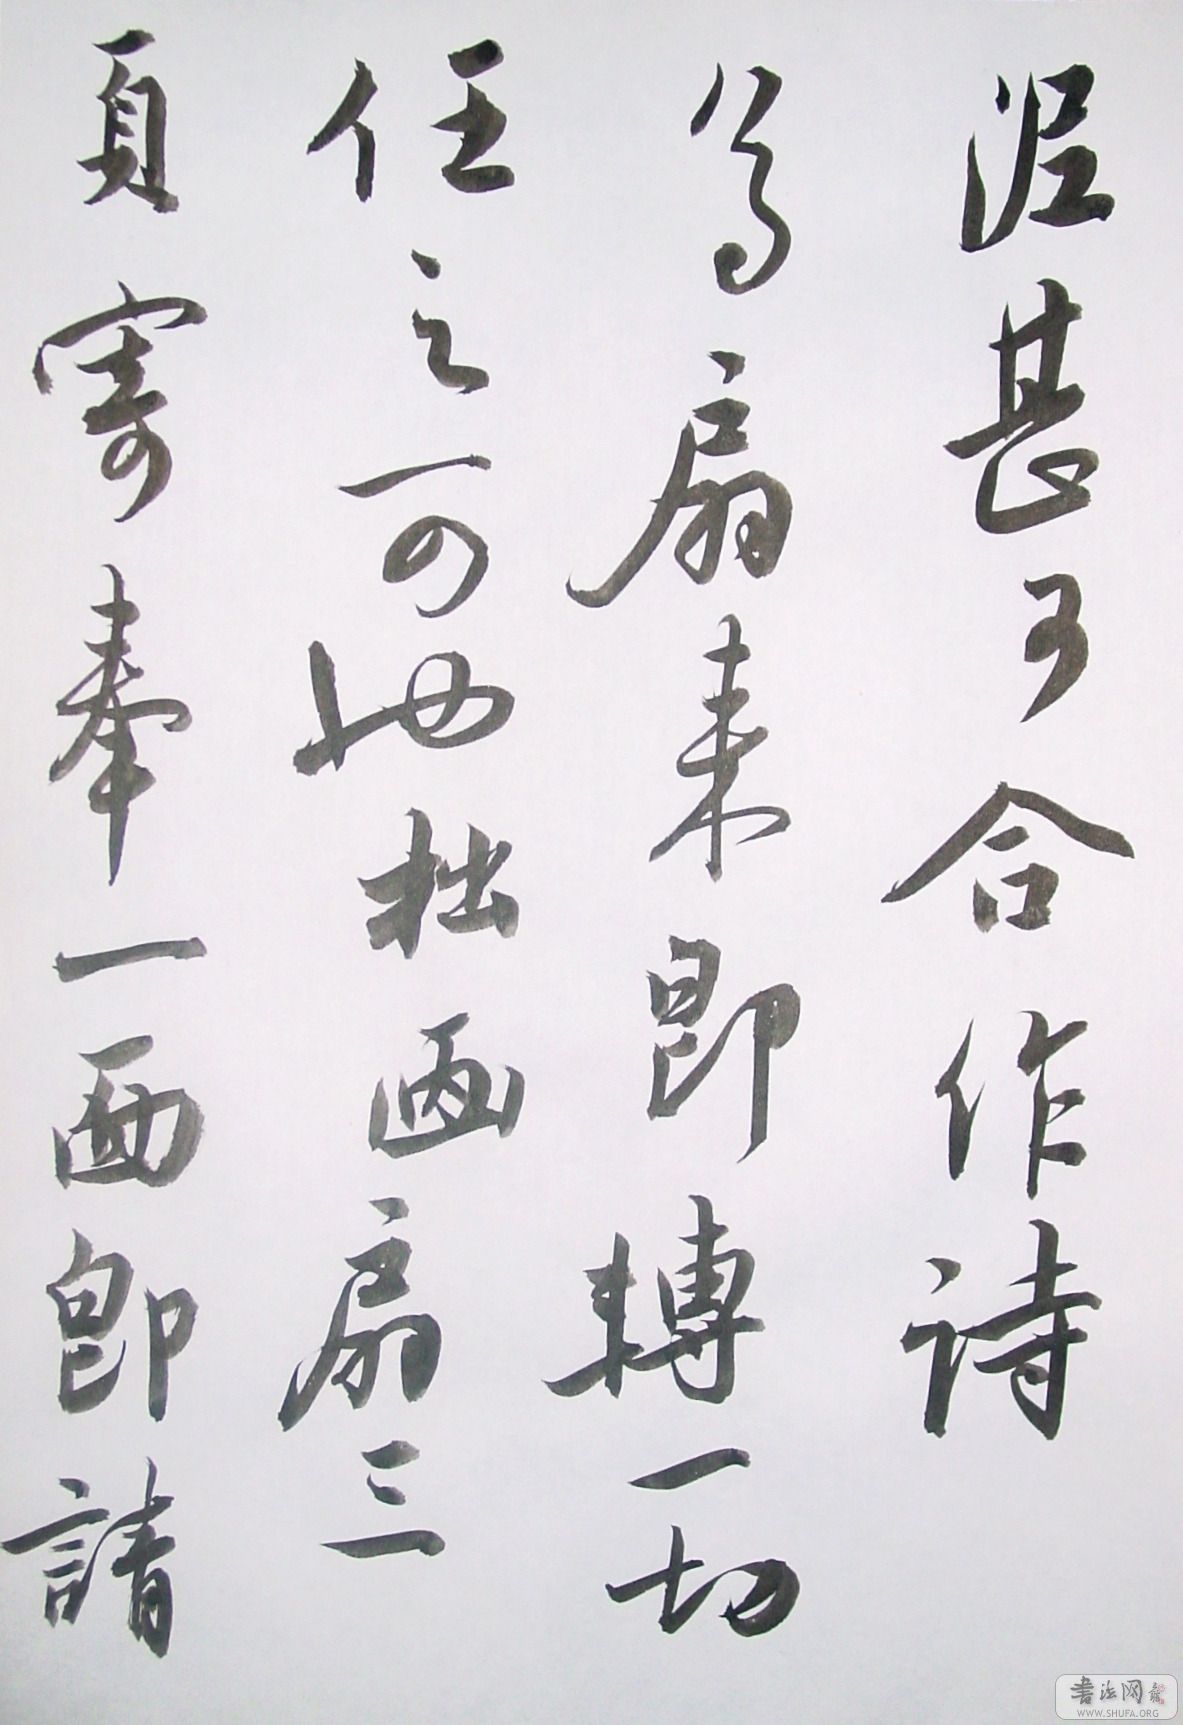 甚合作詩
為扇来即轉一切
任之可也拙画扇三
頁寄奉一西即請
書法网
WWW.SHUFA.ORG